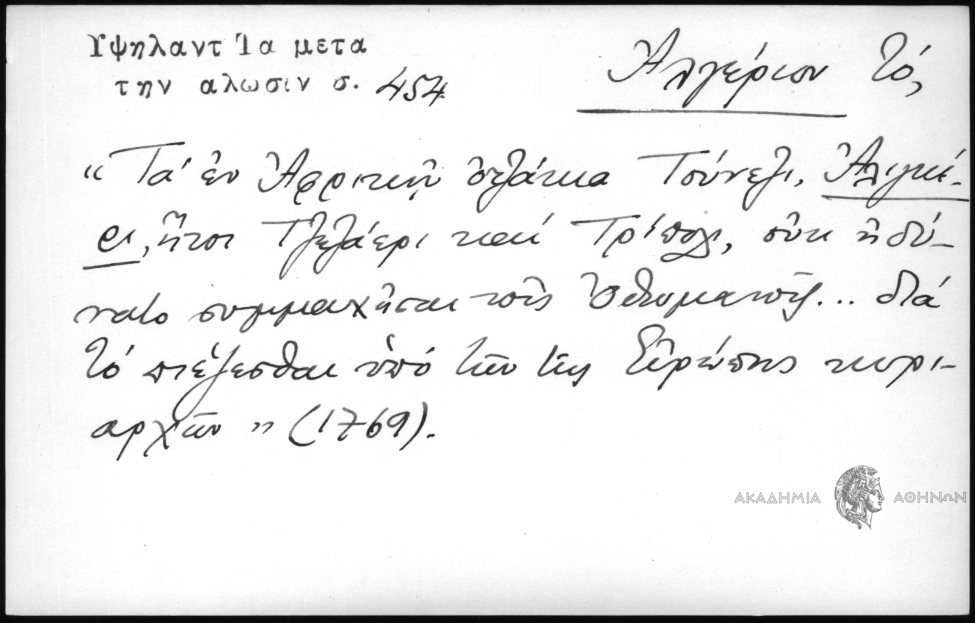 Υψηλαντ Ία μετα
την αλωσιν σ. 454
Ἀλγέριον τό,
“Τά ἐν Ἀφρικῇ ὀτζάκια Τούνεζι, Ἀλιγκέ-
ρι, ἤτοι Τζεζάερι καί Τρίπολι, οὐκ ἠδύ-
νατο συμμαχῆσαι τοῖς Ὀθωμανοῖς... διά
τό πιέζεσθαι ὑπό τῶν τῆς Εὐρώπης κυρι-
αρχῶν” (1769).
ΑΚΑΔΗΜΙΑ ΑΘΗΝΩΝ